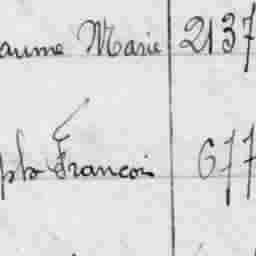 aume Marie 2137
pho François 677